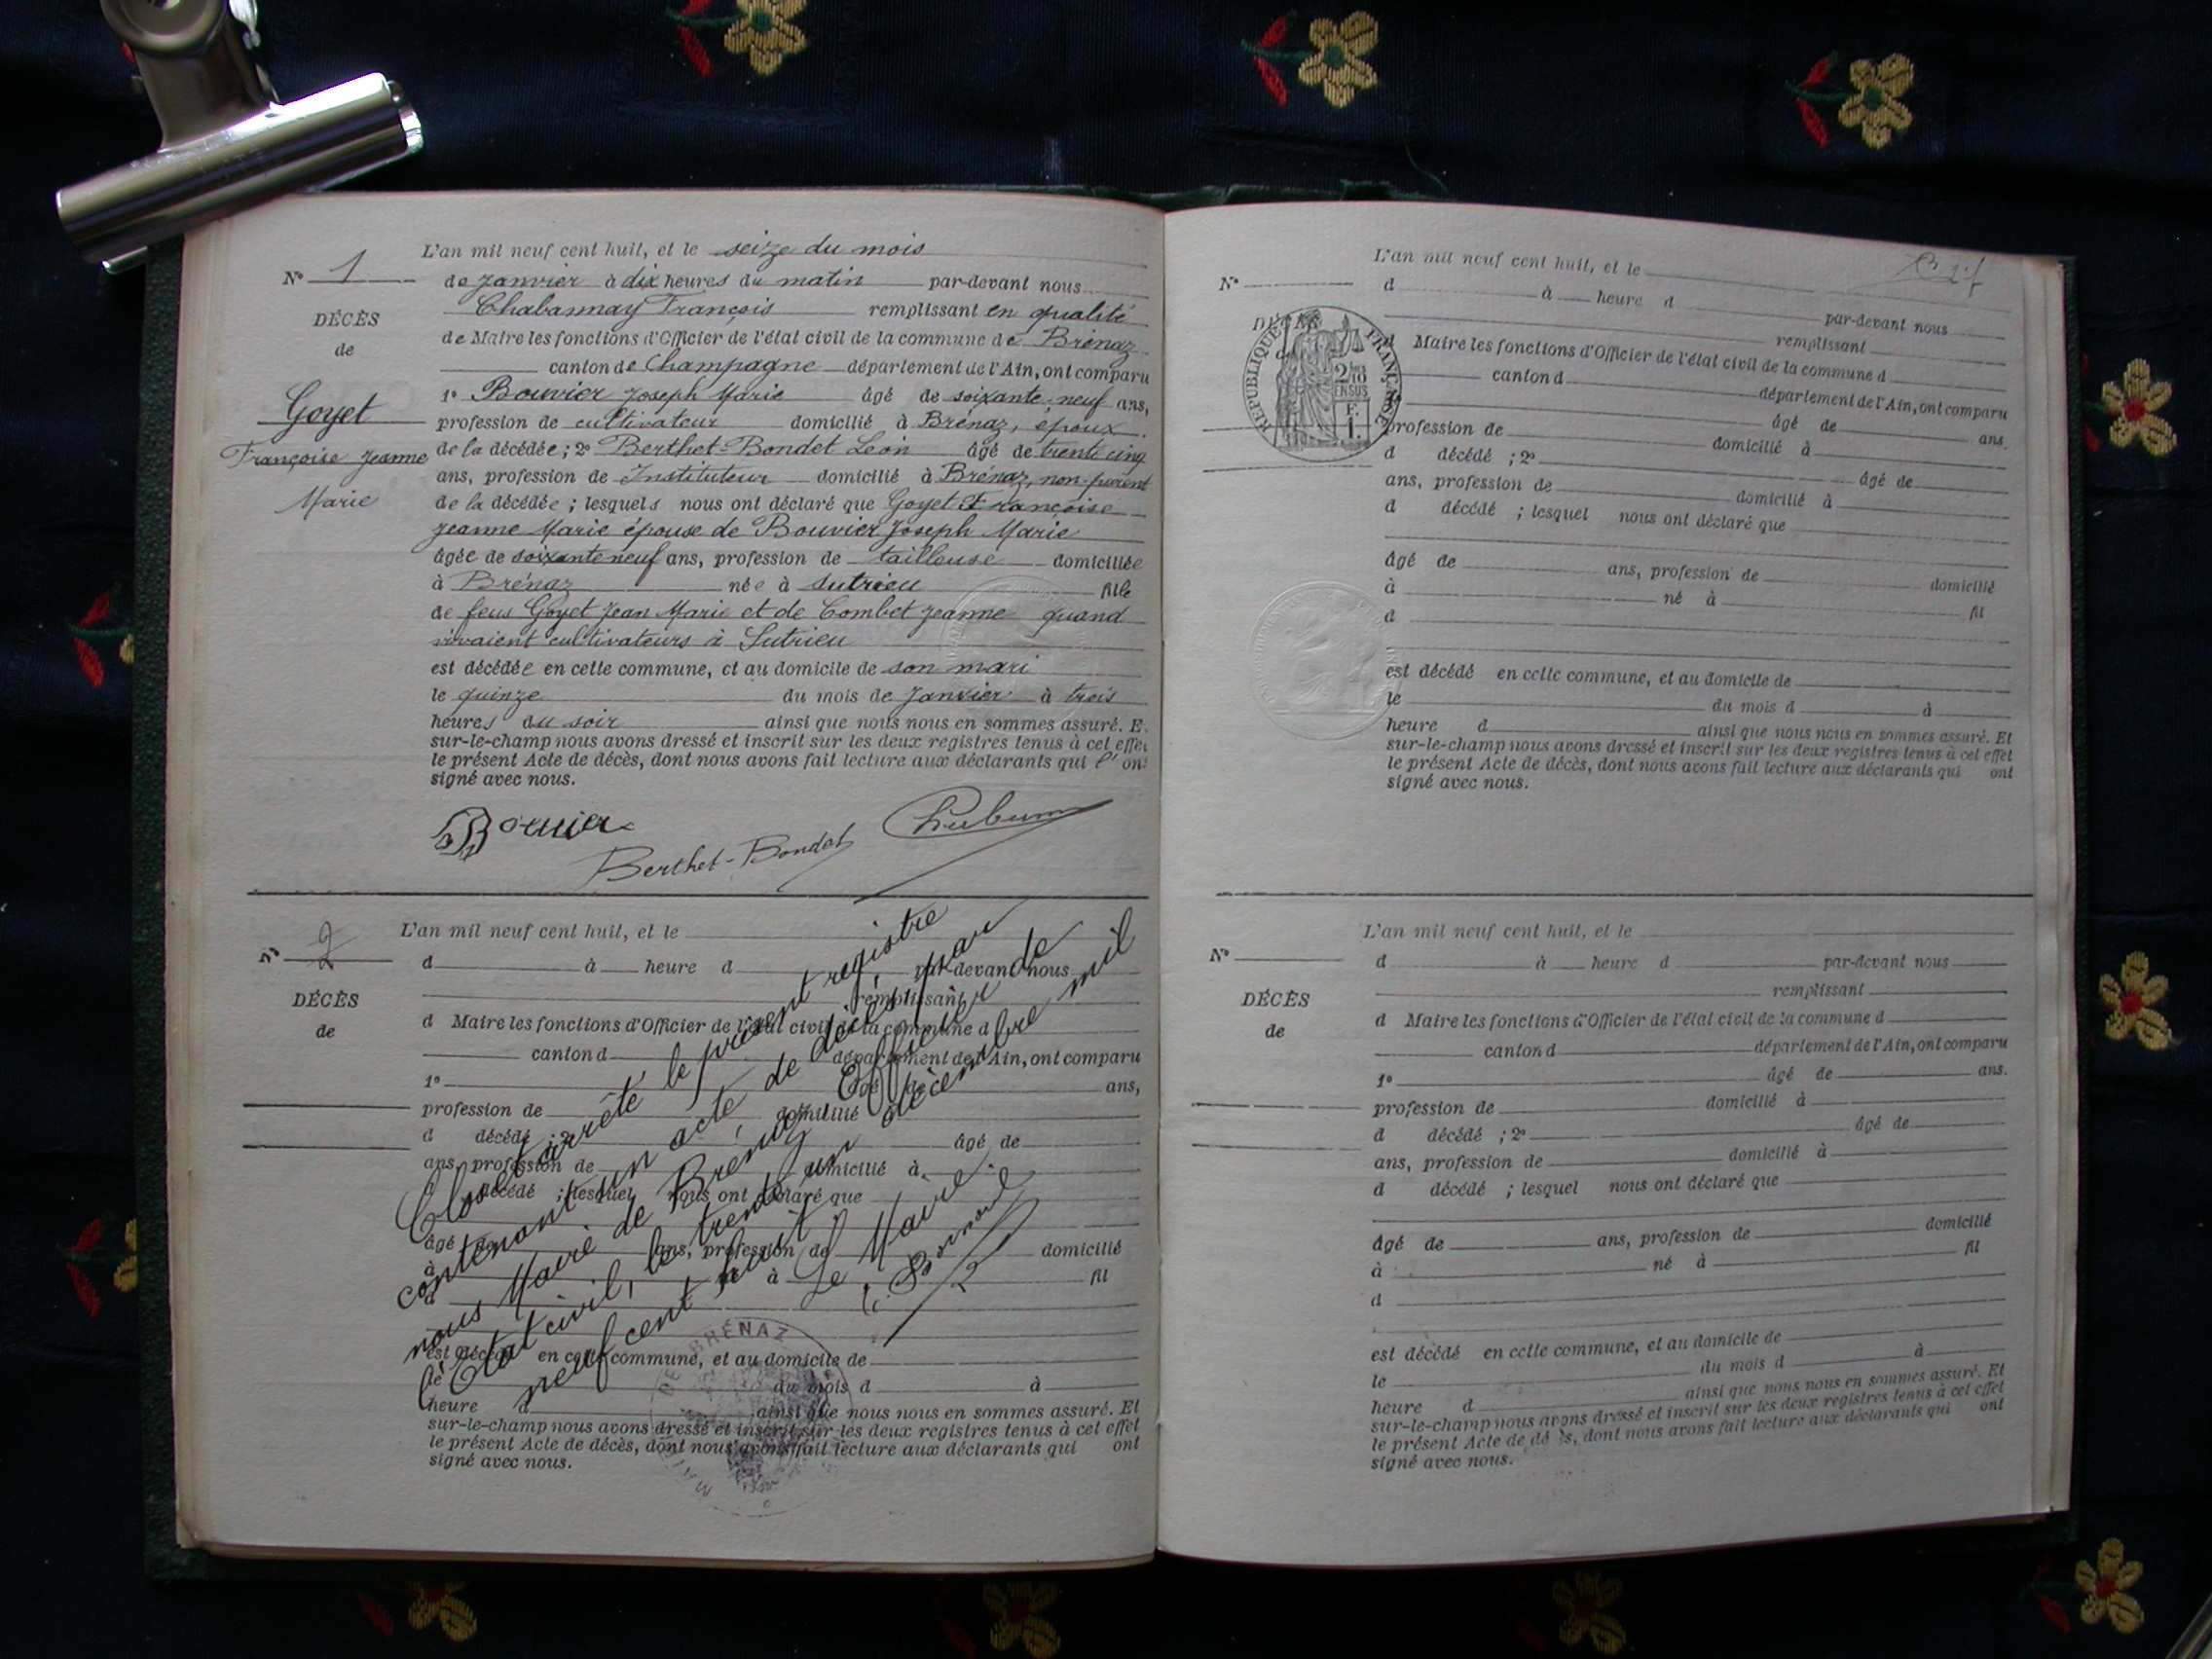 L'an mil neuf cent huit, et le seize du mois
N° 1 de Janvier à dix heures du matin par-devant nous
Chabannay François remplissant en qualité
DÉCÈS
de Maire les fonctions d'Officier de l'état civil de la commune de Brénaz
de
canton de Champagne département de l'Ain, ont comparu
1° Bouvier Joseph Marie âgé de soixante-neuf ans,
Goyet
profession de cultivateur domicilié à Brénaz, époux
Françoise Jeanne
de la décédée ; 2° Berthet-Bondet Léon âgé de trente cinq
ans, profession de Instituteur domicilié à Brénaz, non-parent
Marie
de la décédée ; lesquels nous ont déclaré que Goyet Françoise
Jeanne Marie épouse de Bouvier Joseph Marie
âgée de soixante neuf ans, profession de tailleuse domiciliée
à Brénaz née à Sutrieu fille
de feus Goyet Jean Marie et de Combet Jeanne quand
vivaient cultivateurs à Sutrieu
est décédée en cette commune, et au domicile de son mari
le quinze du mois de Janvier à trois
heures du soir ainsi que nous nous en sommes assuré. E
sur-le-champ nous avons dressé et inscrit sur les deux registres tenus à cet effet
le présent Acte de décès, dont nous avons fait lecture aux déclarants qui l'ont
signé avec nous.
Bouvier
Berthet-Bondet
L'an mil neuf cent huit, et le
N° 2
d à heure d par-devant nous
remplissant
DÉCÈS
d Maire les fonctions d'Officier de l'état civil de la commune d
de
canton d département de l'Ain, ont comparu
1° âgé de ans,
profession de domicilié à
d décédé ; 2° âgé de
ans, profession de domicilié à
d décédé ; lesquel nous ont déclaré que
âgé de ans, profession de domicilié
à né à fil
d
est décédé en cette commune, et au domicile de
le du mois d à
heure d ainsi que nous nous en sommes assuré. Et
sur-le-champ nous avons dressé et inscrit sur les deux registres tenus à cet effet
le présent Acte de décès, dont nous avons fait lecture aux déclarants qui ont
signé avec nous.
Clos et arrêté, le présent registre
contenant un acte de décès, par
nous Maire de Brenaz, Officier de
l'Etat civil, le trente un décembre mil
neuf cent huit
Le Maire.
MAIRIE DE BRÉNAZ
L'an mil neuf cent huit, et le
N°
d à heure d par-devant nous
remplissant
DÉCÈS
RÉPUBLIQUE FRANÇAISE
2/10 EN SUS
F. 1.
d Maire les fonctions d'Officier de l'état civil de la commune d
canton d département de l'Ain, ont comparu
âgé de ans.
profession de domicilié à
d décédé ; 2° âgé de
ans, profession de domicilié à
d décédé ; lesquel nous ont déclaré que
âgé de ans, profession de domicilié
à né à fil
d
est décédé en cette commune, et au domicile de
le du mois d à
heure d ainsi que nous nous en sommes assuré. Et
sur-le-champ nous avons dressé et inscrit sur les deux registres tenus à cet effet
le présent Acte de décès, dont nous avons fait lecture aux déclarants qui ont
signé avec nous.
L'an mil neuf cent huit, et le
N°
d à heure d par-devant nous
remplissant
DÉCÈS
d Maire les fonctions d'Officier de l'état civil de la commune d
de
canton d département de l'Ain, ont comparu
1° âgé de ans.
profession de domicilié à
d décédé ; 2° âgé de
ans, profession de domicilié à
d décédé ; lesquel nous ont déclaré que
âgé de ans, profession de domicilié
à né à fil
d
est décédé en cette commune, et au domicile de
le du mois d à
heure d ainsi que nous nous en sommes assuré. Et
sur-le-champ nous avons dressé et inscrit sur les deux registres tenus à cet effet
le présent Acte de dé ès, dont nous avons fait lecture aux déclarants qui ont
signé avec nous.